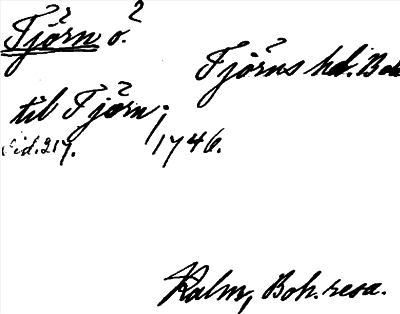 Tjörn ö.
Tjörns hd. Boh
til Tjörn;
Sid. 217. 1746.
Kalm, Boh. resa.